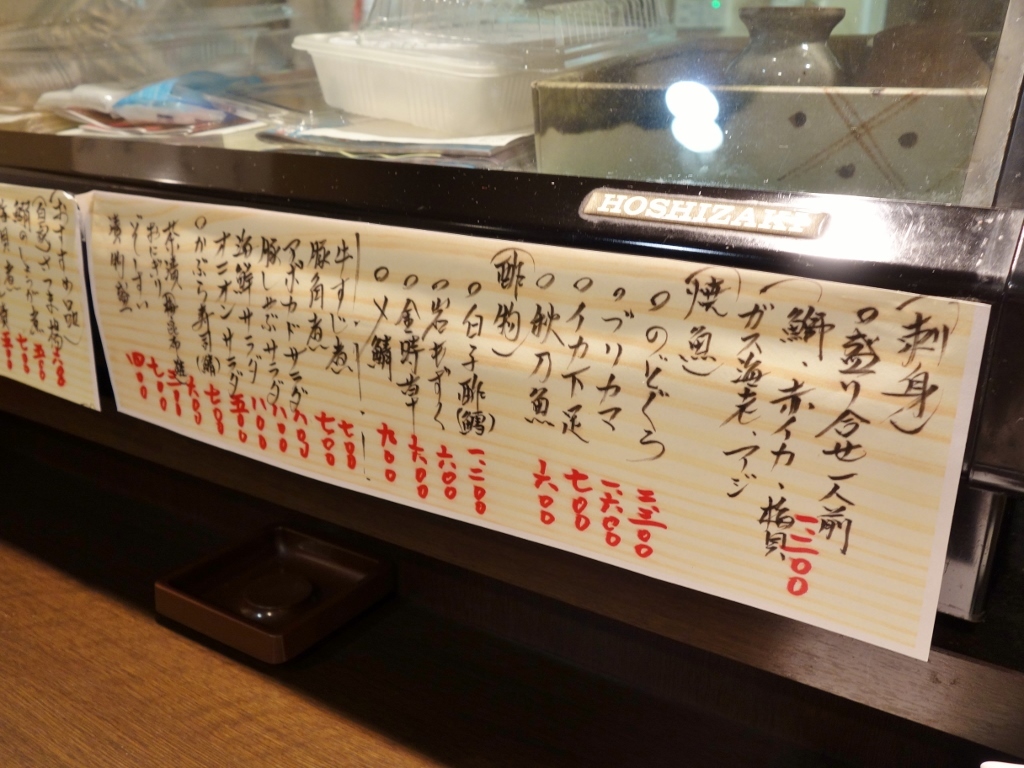 HOSHIZAKI
(刺身)
○盛り合せ一人前 一、三〇〇
鰤、赤イカ、梅貝
ガス海老、アジ
(焼魚)
○のどぐろ 三、三〇〇
○ブリカマ 一、六〇〇
○イカ下足 七〇〇
○秋刀魚 一、六〇〇
(酢物)
○白子酢(鱈) 一、二〇〇
○岩もずく 六〇〇
○金時草 六〇〇
○〆鯖 九〇〇
牛すじ煮 七〇〇
豚角煮 七〇〇
アボカドサラダ 八〇〇
豚しゃぶサラダ 八〇〇
海鮮サラダ 八〇〇
オニオンサラダ 五〇〇
○かぶら寿司(鰤) 七〇〇
茶漬
おにぎり
ぞうすい 七〇〇
漬物盛 四〇〇
おすすめ